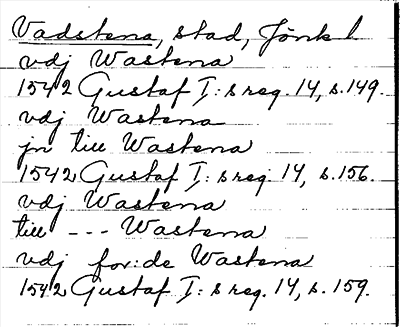 Vadstena, stad, Jönk l.
vdj Wastena
1542 Gustaf I:s reg. 14, s. 149.
vdj Wastena
jn till Wastena
1542 Gustaf I:s reg. 14, s. 156.
vdj Wastena
till --- Wastena
vdj for:de Wastena
1542 Gustaf I:s reg. 14, s. 159.